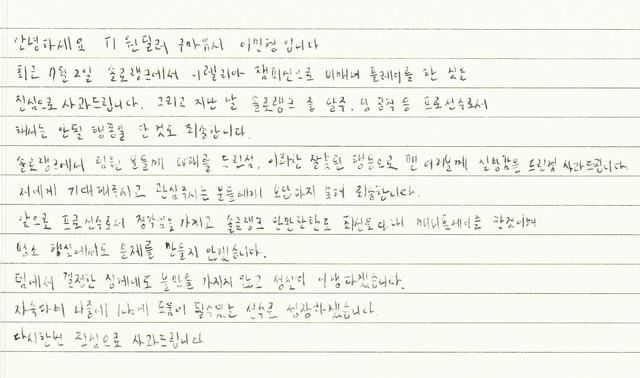 안녕하세요 T1 원딜러 구마유시 이민형 입니다
최근 7월2일 솔로랭크에서 이렐리아 챔피언으로 비매너 플레이를 한 것은
진심으로 사과드립니다. 그리고 지난 날 솔로랭크 중 탈주, 핑 공격 등 프로선수로써
해서는 안될 행동을 한 것도 죄송합니다.
솔로랭크에서 팀원 분들께 피해를 드린점, 이러한 잘못된 행동으로 팬 여러분께 실망감을 드린점 사과드립니다.
저에게 기대해주시고 관심주시는 분들에게 보답하지 못해 죄송합니다.
앞으로 프로선수로서 경각심을 가지고 솔로랭크 한판한판도 최선을 다해 매너플레이를 할것이며
평소 행실에서도 문제를 만들지 않겠습니다.
팀에서 결정한 징계에도 불만을 가지지 않고 성실히 이행하겠습니다.
자숙하며 나중에 도움이 될수있는 선수로 성장하겠습니다.
다시한번 진심으로 사과드립니다